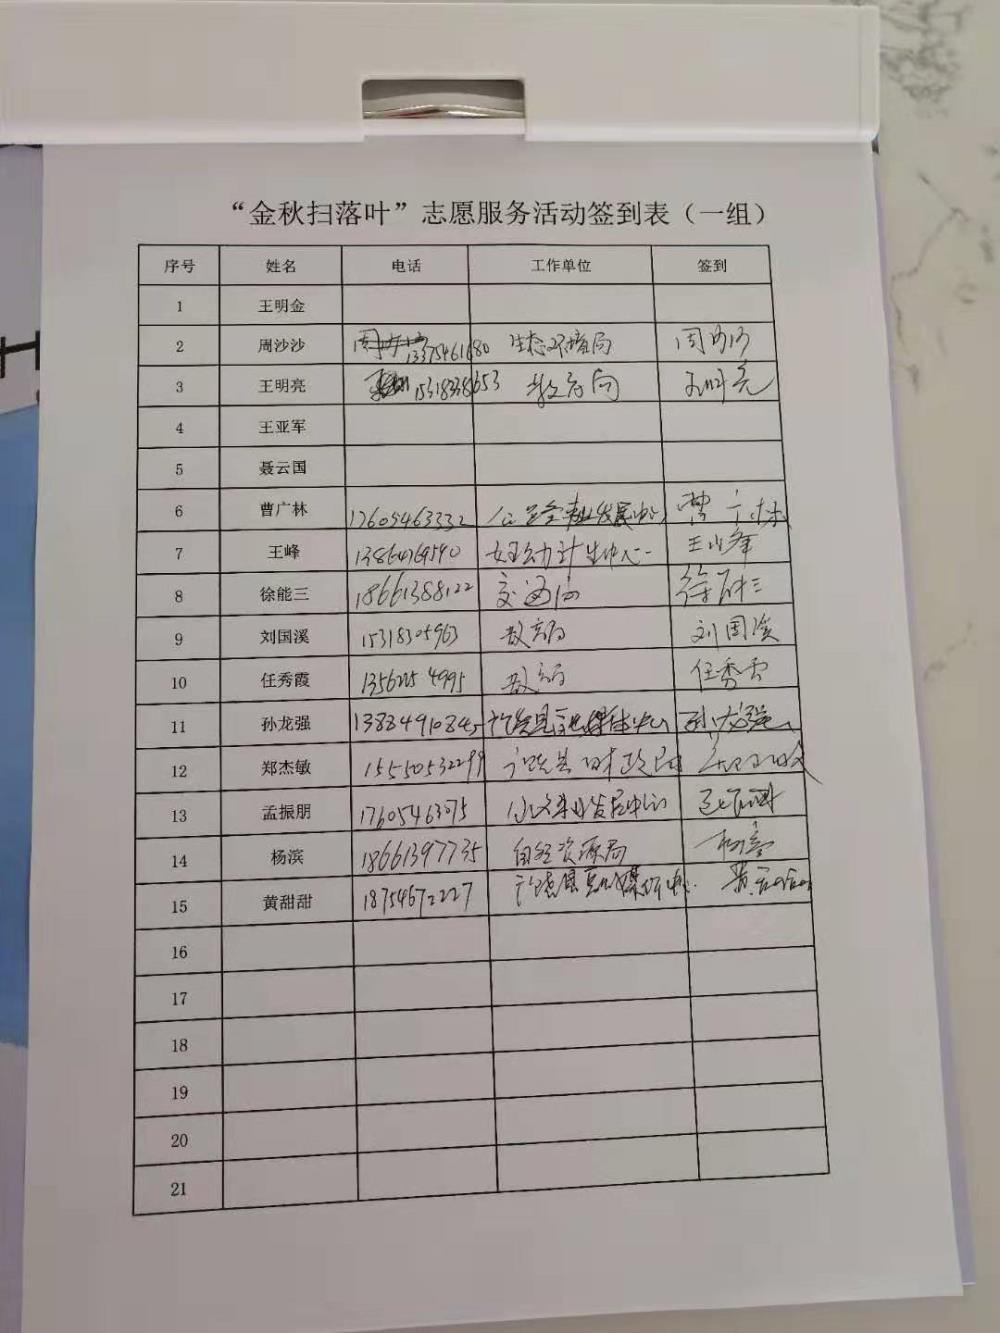 “金秋扫落叶”志愿服务活动签到表（一组）
序号 姓名 电话 工作单位 签到
1 王明金
2 周沙沙 13375461680 生态环境局 周沙沙
3 王明亮 15318338653 教育局 王明亮
4 王亚军
5 聂云国
6 曹广林 17605463332 曹广林
7 王峰 13864769590 妇幼计生中心 王峰
8 徐能三 18661388122 交通局 徐能三
9 刘国溪 15318305963 教育局 刘国溪
10 任秀霞 教育局 任秀霞
11 孙龙强 孙龙强
12 郑杰敏 15550532299 财政局
13 孟振朋 17605463075 孟振朋
14 杨滨 18661397735 自然资源局 杨滨
15 黄甜甜 18754672227 黄甜甜
16
17
18
19
20
21